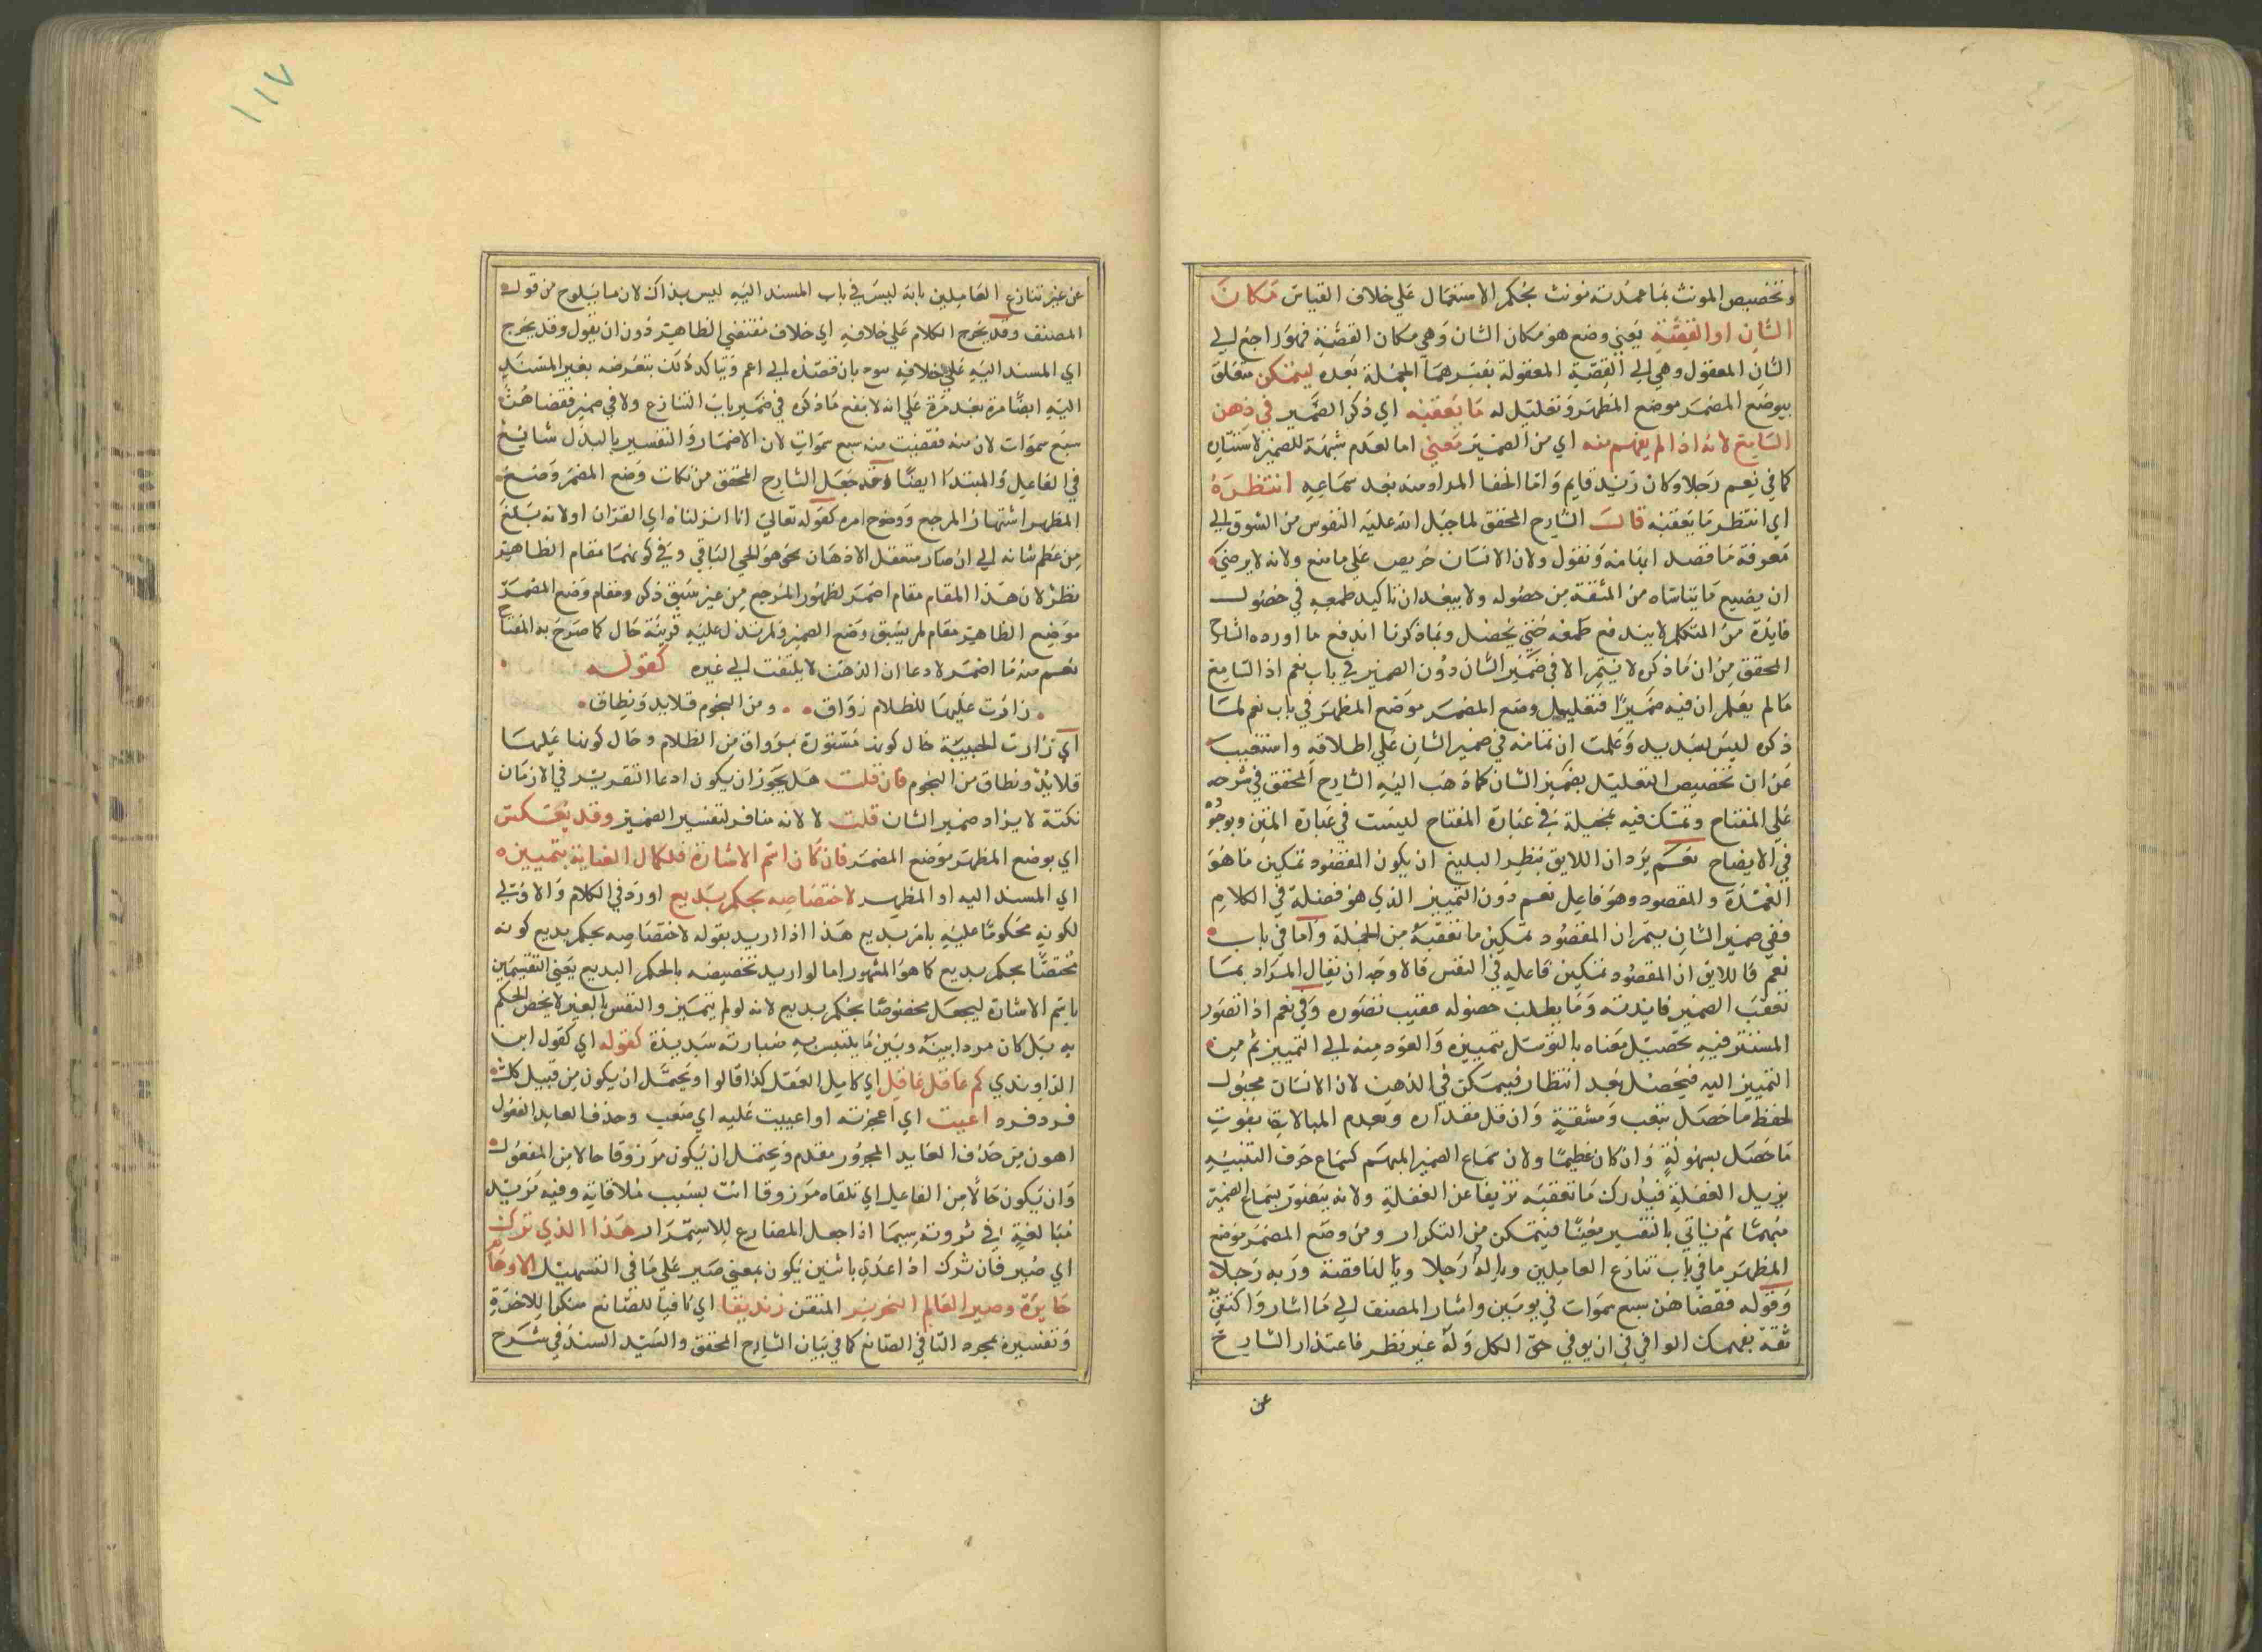 وتخصيص المونث بما عمدته مونث بحكم الاستعمال على خلاف القياس مكان
الشان او القصة يعني وضع هو مكان الشان وهي مكان القصة فهو راجع الي
الشان المعقول وهي الي القصة المعقولة يفسرهما الجملة بعده ليتمكن متعلق
بيوضع المضمر موضع المظهر وتعليل له ما يعقبه اي ذكر الضمير في ذهن
السامع لانه اذا لم يفهم منه اي من الضمير معني اما لعدم شبهة للضمير لاستتاره
كما في نعم رجلا وكان زيد قايم واما لخفا المراد منه بعد سماعه انتظره
اي انتظر ما يعقبه قال الشارح المحقق لما جبل الله عليه النفوس من الشوق الي
معرفة ما قصد ابهامه ونقول ولان الانسان حريص علي ما منع ولانه لا يرضي
ان يضيع ما يتاساه من المشقة من حصوله ولا يبعد ان تاكيد طمعه في حصول
فايدة من المتكلم لا يندفع طمعه حتي يحصل وبما ذكرنا اندفع ما اورده الشارح
المحقق من ان ما ذكره لا يتم الا في ضمير الشان دون الضمير في باب نعم اذ السامع
ما لم يعلم ان فيه ضميرا فتعليل وضع المضمر موضع المظهر في باب نعم لما
ذكره ليس بسديد وعلمت ان تمامه في ضمير الشان علي اطلاقه واستغنيت
عن ان تخصيص التعليل بضمير الشان كما ذهب اليه الشارح المحقق في شرحه
علي المفتاح وتمسك فيه بمخيلة في عبارة المفتاح ليست في عبارة المتن وبوجوه
في الايضاح نعم يرد ان اللايق بنظر البليغ ان يكون المقصود تمكين ما هو
العمدة والمقصود وهو فاعل نعم دون التمييز الذي هو فضلة في الكلام
ففي ضمير الشان يتم ان المقصود تمكين ما تعقبه من الجملة واما في باب
نعم فاللايق ان المقصود تمكين فاعله في النفس فالاوجه ان يقال المراد بما
تعقب الضمير فايدته وما يطلب حصوله عقيب تصوره وفي نعم اذا تصور
المستتر فيه تحصيل معناه بالتوسل بتمييزه والعود منه الي التمييز ثم من
التمييز اليه فيحصل بعد انتظار فيمكن في الذهن لان الانسان مجبول
لحفظ ما حصل بتعب ومشقة وان قل مقداره وبعدم المبالاة بفوت
ما حصل بسهولة وان كان عظيما ولان سماع الضمير المبهم كسماع حرف التنبيه
يزيل الغفلة فيدرك ما تعقبه تزيفا عن الغفلة ولانه يتصور بسماع الضمير
مبهما ثم ياتي بالتفسير معينا فيتمكن من التكرار ومن وضع المضمر موضع
المظهر ما في باب تنازع العاملين وياله رجلا ويا لها قصة وربه رجلا
وقوله فقضاهن سبع سموات في يومين واشار المصنف الي ما اشار واكتفي
ثقة بفهمك الوافي في ان يوفي حق الكل وله غير نظر فاعتذار الشارح
عن
١١٧
عن غير تنازع العاملين بانه ليس في باب المسند اليه ليس بذاك لان ما يلوح من قول
المصنف وقد يخرج الكلام علي خلافه اي خلاف مقتضي الظاهر دون ان يقول وقد يخرج
اي المسند اليه علي خلافه بان قصده الي اعم ويتاكد ذلك بتعرضه بغير المسند
اليه ايضا مرة بعد مرة علي انه لا ينفع ما ذكره في ضمير باب التنازع ولا في ضمير فقضاهن
سبع سموات لان منه فقضيت منه سبع سموات لان الاضمار والتفسير بالبدل شايع
في الفاعل والمبتدا ايضا وقد جعل الشارح المحقق من نكات وضع المضمر وضع
المظهر اشتهار المرجع ووضوح امره كقوله تعالي انا انزلناه اي القران او لانه بلغ
من عظم شانه الي ان صار متعقل الاذهان نحو هو الحي الباقي وفي كونهما مقام الظاهر
نظر لان هذا المقام مقام اضمر لظهور المرجع من غير سبق ذكر ومقام وضع المضمر
موضع الظاهر مقام لم يسبق وضع الضمير ولم تدل عليه قرينة حال كما صرح به المفتاح
نعم منه ما اضمر لادعا ان الذهن لا يلتفت الي غيره كقوله
زارت عليها للظلام رواق ومن النجوم قلايد ونطاق
اي زارت الحبيبة حال كونها مستورة برواق من الظلام وحال كونها عليها
قلايد ونطاق من النجوم فان قلت هل يجوز ان يكون ادعا التقرير في الاذهان
نكتة لايراد ضمير الشان قلت لا لانه مناف لتفسير الضمير وقد يعكس
اي يوضع المظهر موضع المضمر فان كان اسم الاشارة فلكمال العناية بتمييزه
اي المسند اليه او المظهر لاختصاصه بحكم بديع اورد في الكلام والاولي
لكونه محكوما عليه بامر بديع هذا اذا اريد بقوله لاختصاصه بحكم بديع كونه
مختصا بحكم بديع كما هو المشهور اما لو اريد تخصيصه بالحكم البديع يعني التقسيمين
باسم الاشارة ليجعل مخصوصا بحكم بديع لانه لو لم يتميز والتبس بالغير لا يخص الحكم
به بل كان مردا بينه وبين ما يلتبس به صارت سديدة كقوله اي كقول ابن
الراوندي كم عاقل عاقل اي كامل العقل كذا قالوا ويحتمل ان يكون من قبيل كلت
فرد فره اعيت اي اعجزته او اعييت عليه اي صعب وحذف العايد المفعول
اهون من حذف العايد المجرور مقدم ويحتمل ان يكون مرزوقا حالا من المفعول
وان يكون حالا من الفاعل اي تلقاه مرزوقا انت بسبب ملاقاته وفيه مزيد
مبالغة في ثروته سيما اذا جعل المضارع للاستمرار هذا الذي ترك
اي صير فان ترك اذا عدي باثنين يكون بمعني صير علي ما في التسهيل الاوهام
حايرة وصير العالم النحرير المتقن زنديقا اي نافيا للصانع منكرا للاخرة
وتفسيره بمجرد النافي الصانع كما في بيان الشارح المحقق والسيد السند في شرح